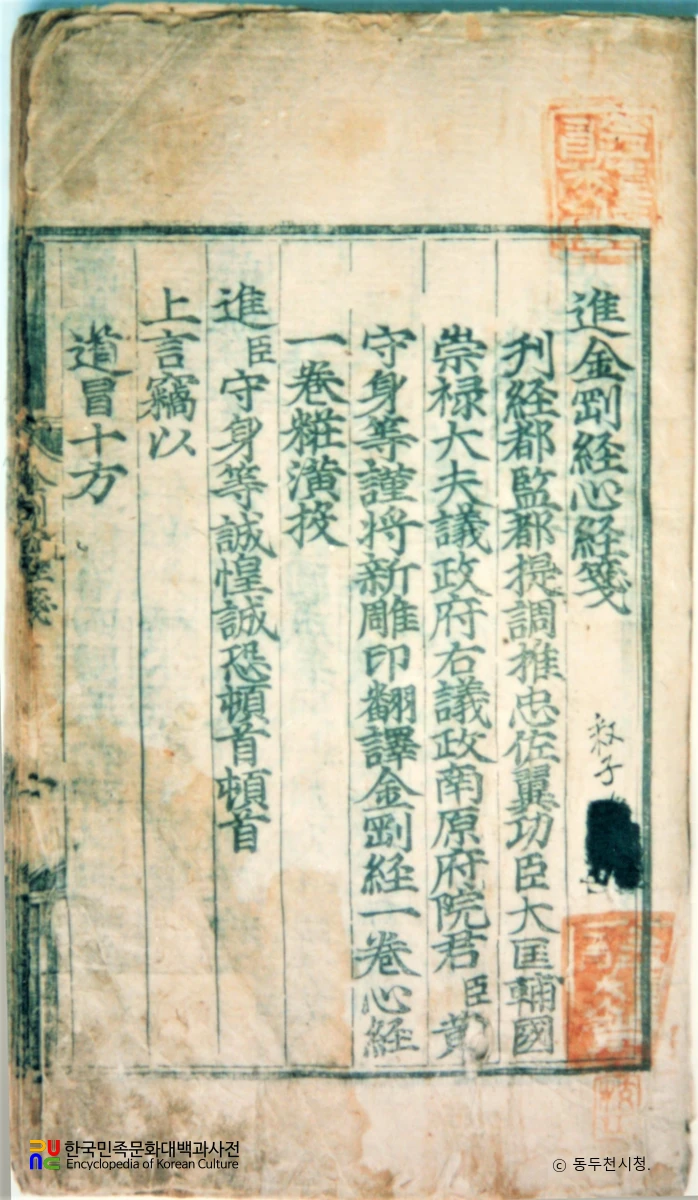 進金剛経心経箋
刋経都監都提調推忠佐翼功臣大匡輔國
崇禄大夫議政府右議政南原府院君臣黃
守身等謹將新雕印翻譯金剛経一卷心経
一卷粧潢投
進臣守身等誠惶誠恐頓首頓首
上言竊以
道冒十方
한국민족문화대백과사전
Encyclopedia of Korean Culture
ⓒ 동두천시청.